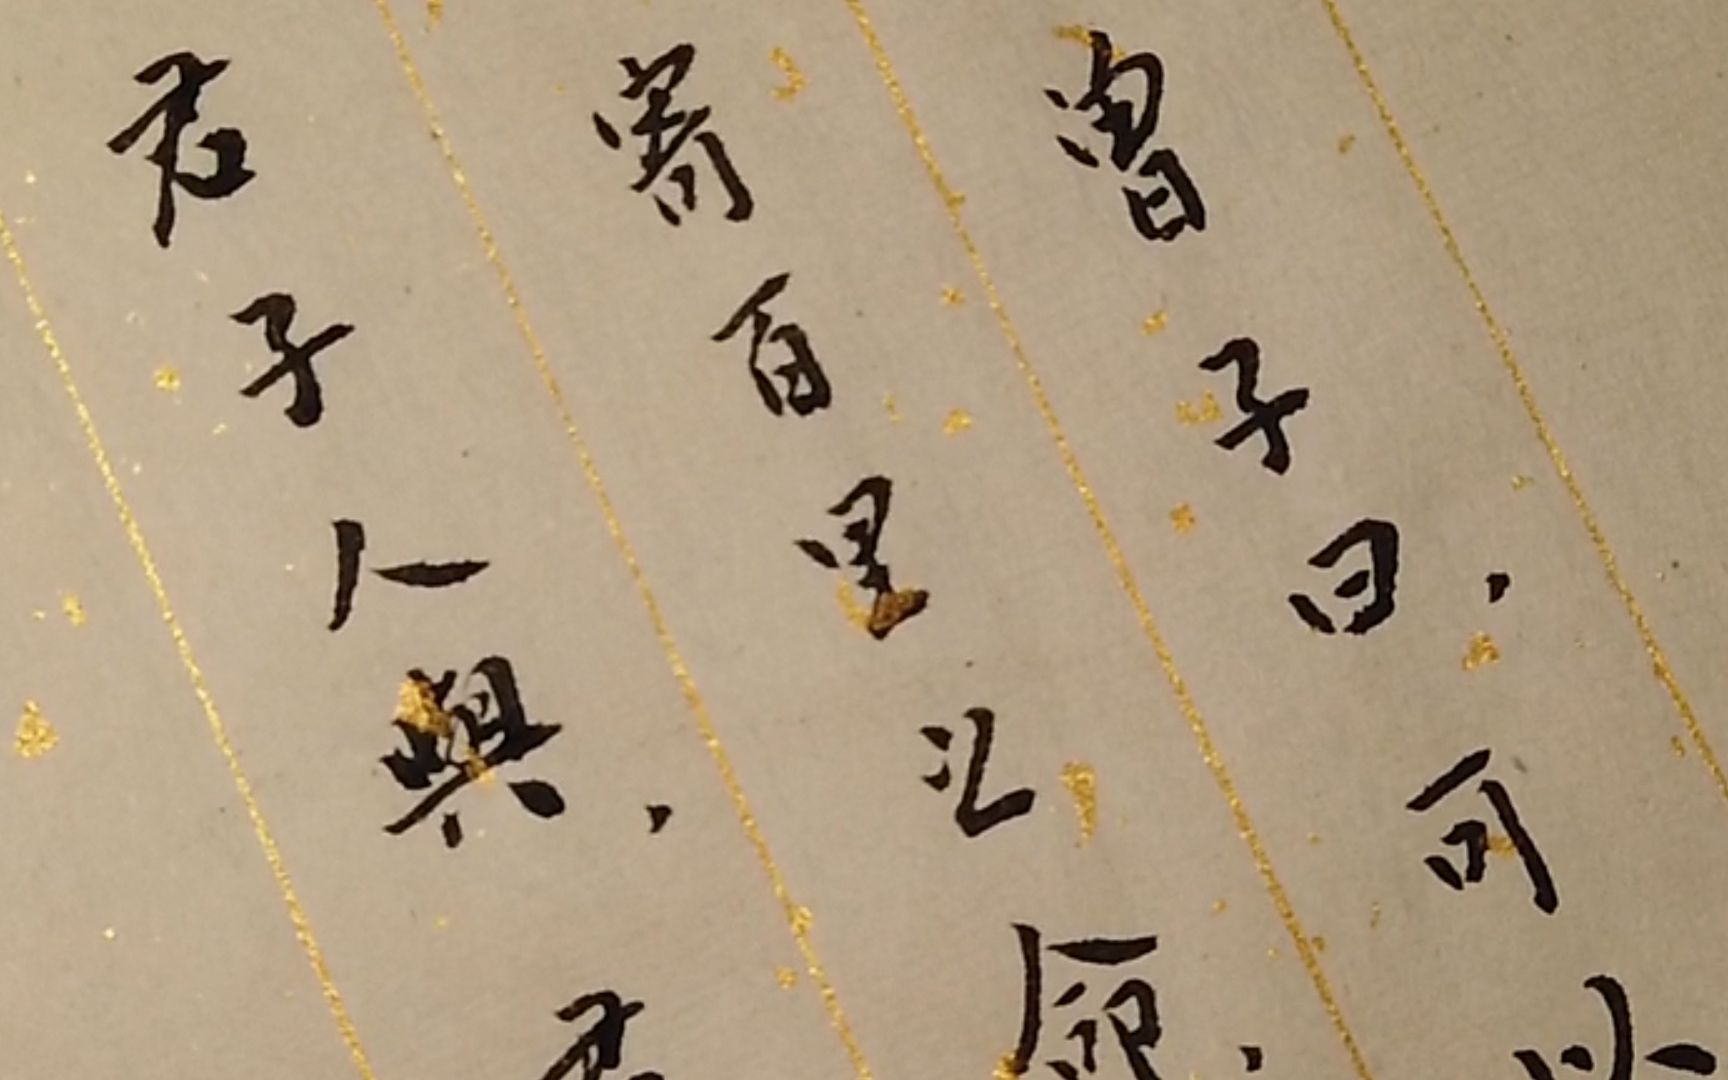 曾子曰，可以
寄百里之命，
君子人與，君